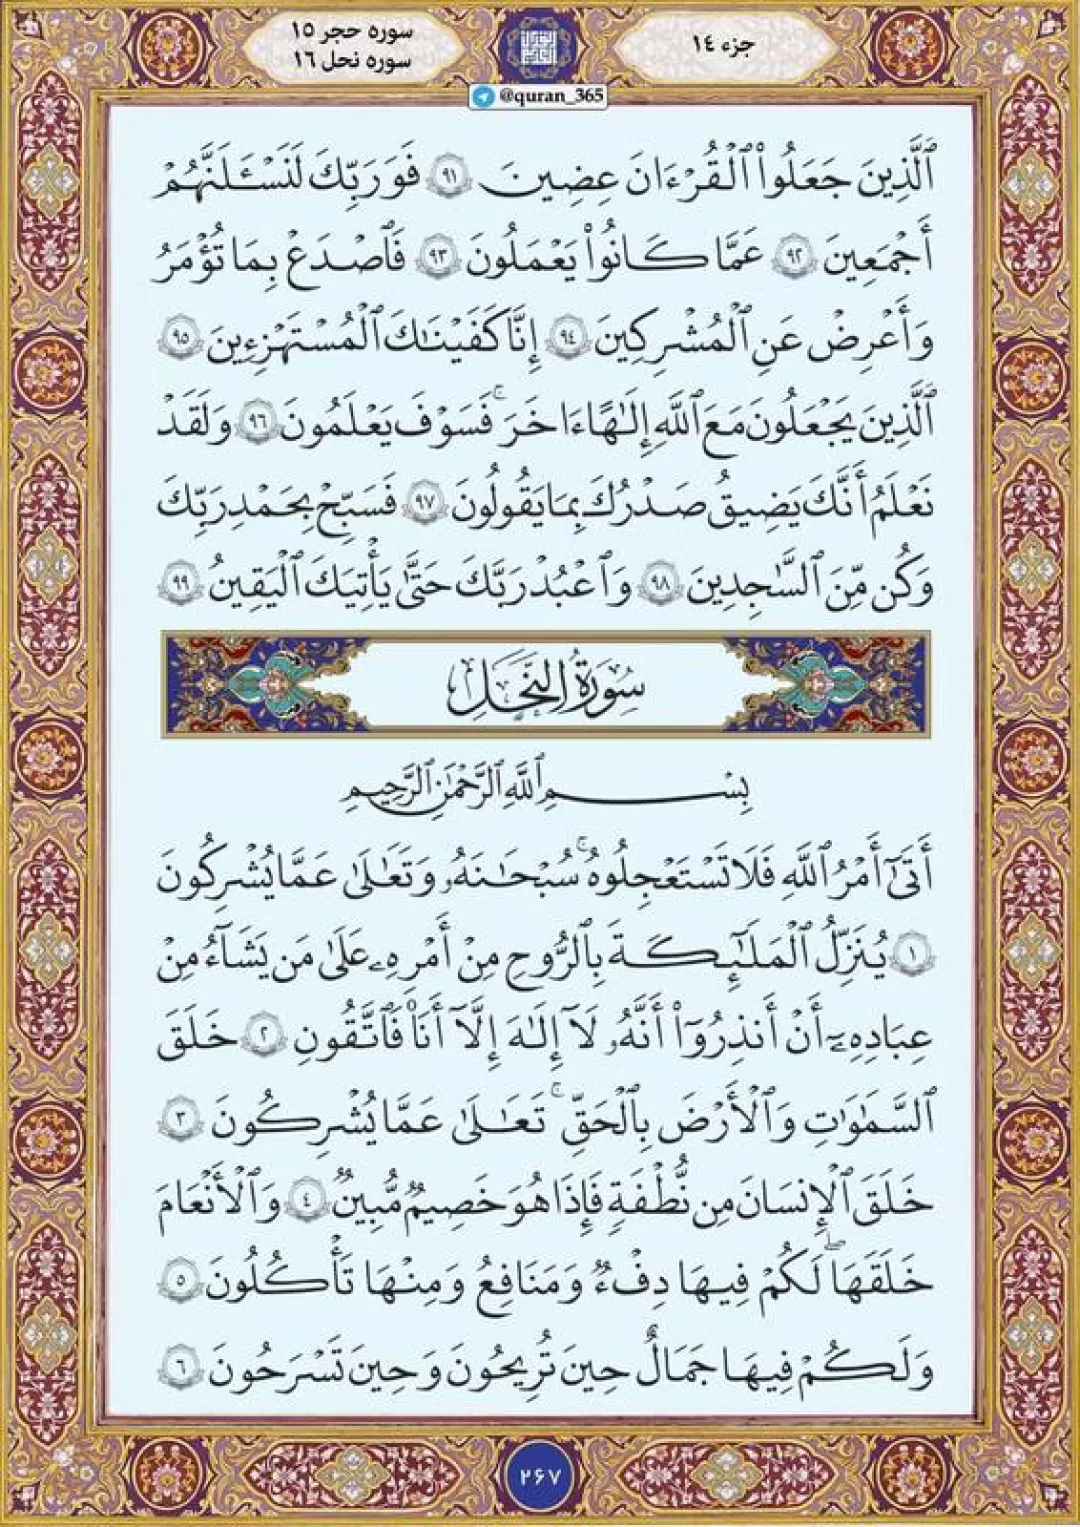 جزء ١٤
سوره حجر ١٥
سوره نحل ١٦
@quran_365
ٱلَّذِينَ جَعَلُوا۟ ٱلْقُرْءَانَ عِضِينَ ٩١ فَوَرَبِّكَ لَنَسْـَٔلَنَّهُمْ
أَجْمَعِينَ ٩٢ عَمَّا كَانُوا۟ يَعْمَلُونَ ٩٣ فَٱصْدَعْ بِمَا تُؤْمَرُ
وَأَعْرِضْ عَنِ ٱلْمُشْرِكِينَ ٩٤ إِنَّا كَفَيْنَـٰكَ ٱلْمُسْتَهْزِءِينَ ٩٥
ٱلَّذِينَ يَجْعَلُونَ مَعَ ٱللَّهِ إِلَـٰهًا ءَاخَرَ ۚ فَسَوْفَ يَعْلَمُونَ ٩٦ وَلَقَدْ
نَعْلَمُ أَنَّكَ يَضِيقُ صَدْرُكَ بِمَا يَقُولُونَ ٩٧ فَسَبِّحْ بِحَمْدِ رَبِّكَ
وَكُن مِّنَ ٱلسَّـٰجِدِينَ ٩٨ وَٱعْبُدْ رَبَّكَ حَتَّىٰ يَأْتِيَكَ ٱلْيَقِينُ ٩٩
سُورَةُ النَّحْلِ
بِسْمِ ٱللَّهِ ٱلرَّحْمَـٰنِ ٱلرَّحِيمِ
أَتَىٰٓ أَمْرُ ٱللَّهِ فَلَا تَسْتَعْجِلُوهُ ۚ سُبْحَـٰنَهُۥ وَتَعَـٰلَىٰ عَمَّا يُشْرِكُونَ
١ يُنَزِّلُ ٱلْمَلَـٰٓئِكَةَ بِٱلرُّوحِ مِنْ أَمْرِهِۦ عَلَىٰ مَن يَشَآءُ مِنْ
عِبَادِهِۦٓ أَنْ أَنذِرُوٓا۟ أَنَّهُۥ لَآ إِلَـٰهَ إِلَّآ أَنَا۠ فَٱتَّقُونِ ٢ خَلَقَ
ٱلسَّمَـٰوَٰتِ وَٱلْأَرْضَ بِٱلْحَقِّ ۚ تَعَـٰلَىٰ عَمَّا يُشْرِكُونَ ٣
خَلَقَ ٱلْإِنسَـٰنَ مِن نُّطْفَةٍ فَإِذَا هُوَ خَصِيمٌ مُّبِينٌ ٤ وَٱلْأَنْعَـٰمَ
خَلَقَهَا ۗ لَكُمْ فِيهَا دِفْءٌ وَمَنَـٰفِعُ وَمِنْهَا تَأْكُلُونَ ٥
وَلَكُمْ فِيهَا جَمَالٌ حِينَ تُرِيحُونَ وَحِينَ تَسْرَحُونَ ٦
٢۶٧